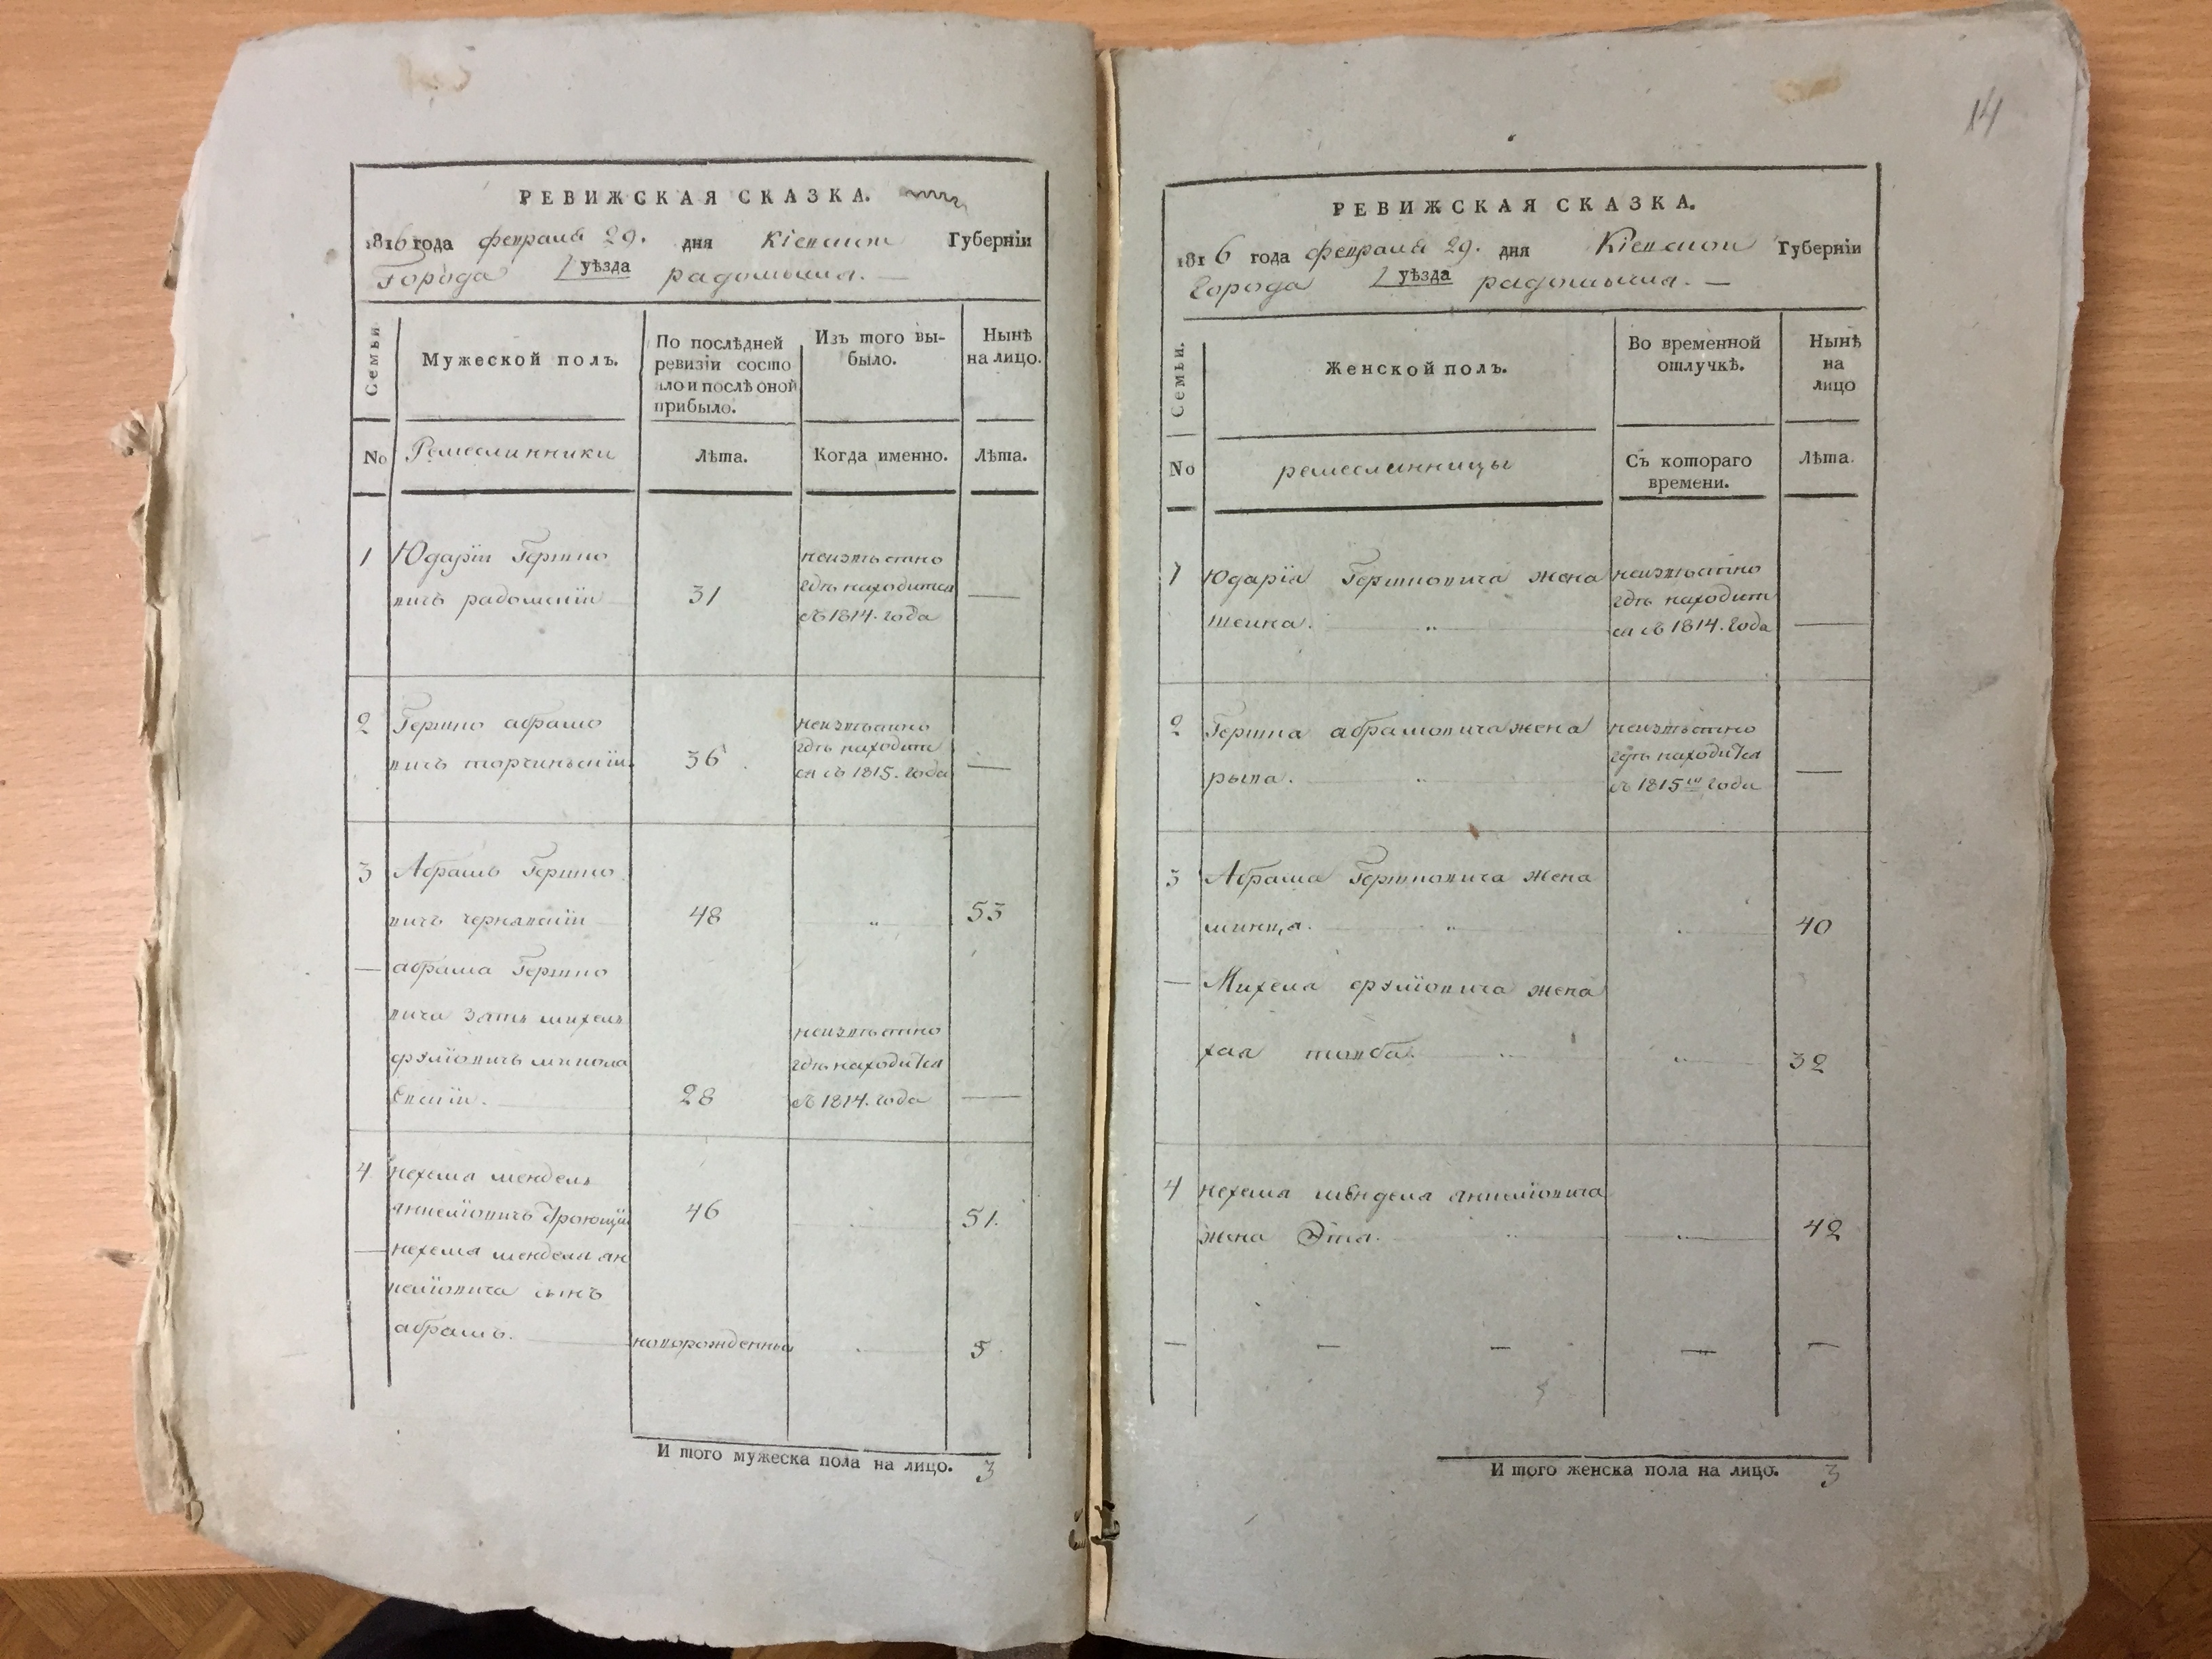 РЕВИЖСКАЯ СКАЗКА.
1816 года февраля 29. дня Кіевской Губерніи
Города уѣзда радомысля.
Семьи.
Мужеской полъ.
По послѣдней
ревизіи состо
яло и послѣ оной
прибыло.
Изъ того вы-
было.
Нынѣ
на лицо.
No
Ремеслинники
Лѣта.
Когда именно.
Лѣта.
1
Юдарій Гершко
вичъ
31
неизвѣстно
гдѣ находится
съ 1814. года
2
Гершко абрамо
вичъ торчинскій
36
неизвѣстно
гдѣ находит
ся съ 1815. года
3
Абрамъ Гершко
вичъ чернявскій
48
53
абрама Гершко
вича зять михель
28
неизвѣстно
гдѣ находится
съ 1814. года
4
нехема мендель
46
51.
нехема менделя ан
челіовича сынъ
абрамъ.
новорожденный
5
И того мужеска пола на лицо. 3
14
РЕВИЖСКАЯ СКАЗКА.
1816 года февраля 29. дня Кіевской Губерніи
Города уѣзда радомысля.
Семьи.
Женской полъ.
Во временной
отлучкѣ.
Нынѣ
на
лицо
No
ремеслинницы
Съ котораго
времени.
Лѣта.
1
Юдарія Гершковича жена
неизвѣстно
гдѣ находит
ся съ 1814. года
2
Гершка абрамовича жена
рывка.
неизвѣстно
гдѣ находится
съ 1815го года
3
Абрама Гершковича жена
40
Михеля жена
хая
32
4
нехема менделя
жена Этля.
42
И того женска пола на лицо. 3